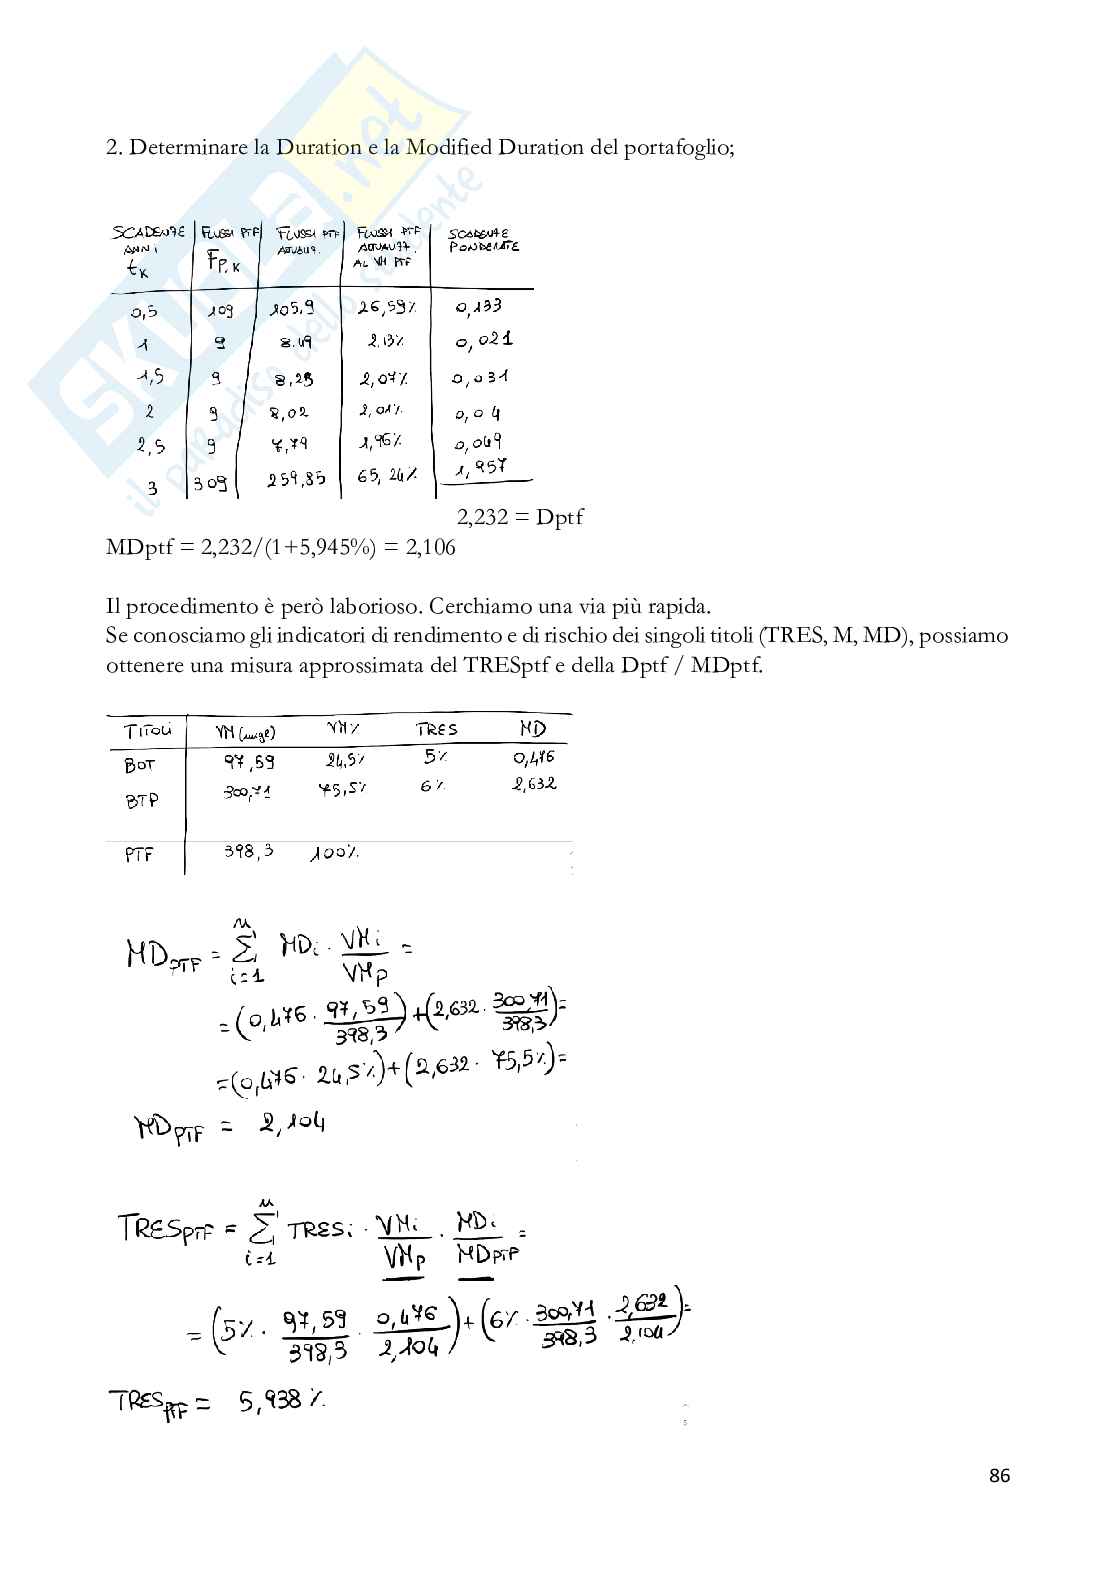 2. Determinare la Duration e la Modified Duration del portafoglio;
SCADENZE ANNI tk | FLUSSI PTF FP,K | FLUSSI PTF ATTUALIZ. | FLUSSI PTF ATTUALIZZ. AL VM PTF | SCADENZE PONDERATE
0,5 | 109 | 105,9 | 26,59% | 0,133
1 | 9 | 8.49 | 2,13% | 0,021
1,5 | 9 | 8,25 | 2,07% | 0,031
2 | 9 | 8,02 | 2,01% | 0,04
2,5 | 9 | 7,79 | 1,96% | 0,049
3 | 309 | 259,85 | 65,24% | 1,957
2,232 = Dptf
MDptf = 2,232/(1+5,945%) = 2,106
Il procedimento è però laborioso. Cerchiamo una via più rapida.
Se conosciamo gli indicatori di rendimento e di rischio dei singoli titoli (TRES, M, MD), possiamo
ottenere una misura approssimata del TRESptf e della Dptf / MDptf.
TITOLI | VM (mgl) | VM% | TRES | MD
BOT | 97,59 | 24,5% | 5% | 0,476
BTP | 300,71 | 75,5% | 6% | 2,632
PTF | 398,3 | 100%
MDPTF = Σ i=1 n MDi · VMi / VMp =
= (0,476 · 97,59 / 398,3) + (2,632 · 300,71 / 398,3) =
= (0,476 · 24,5%) + (2,632 · 75,5%) =
MDPTF = 2,104
TRESPTF = Σ i=1 n TRESi · VMi / VMp · MDi / MDPTF =
= (5% · 97,59 / 398,3 · 0,476 / 2,104) + (6% · 300,71 / 398,3 · 2,632 / 2,104) =
TRESPTF = 5,938%
86
SKUOLA.net
il paradiso dello studente